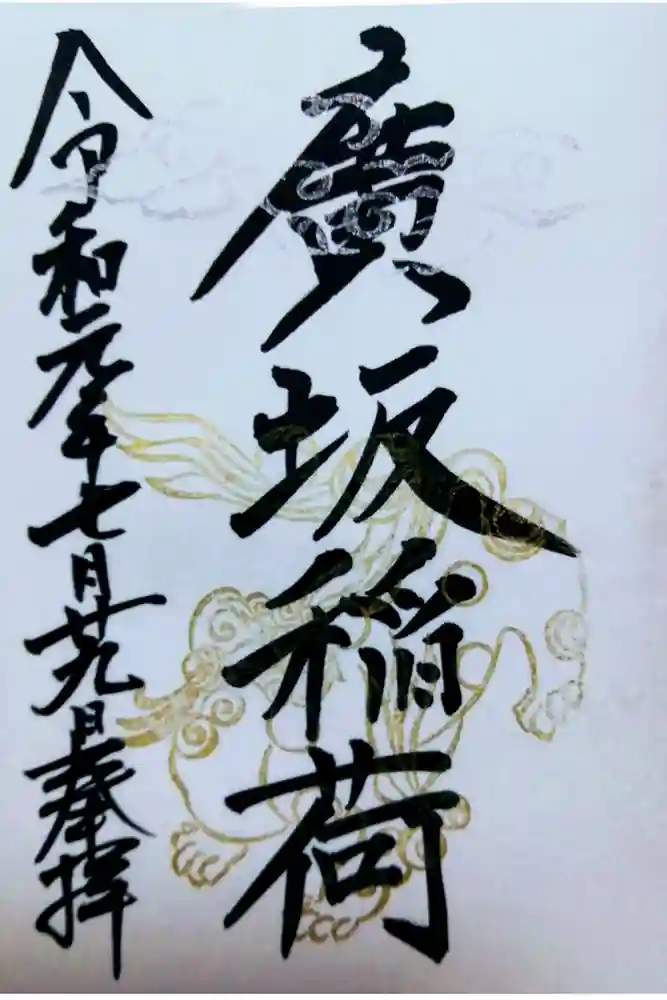 廣坂稲荷
令和元年七月廿九日奉拝